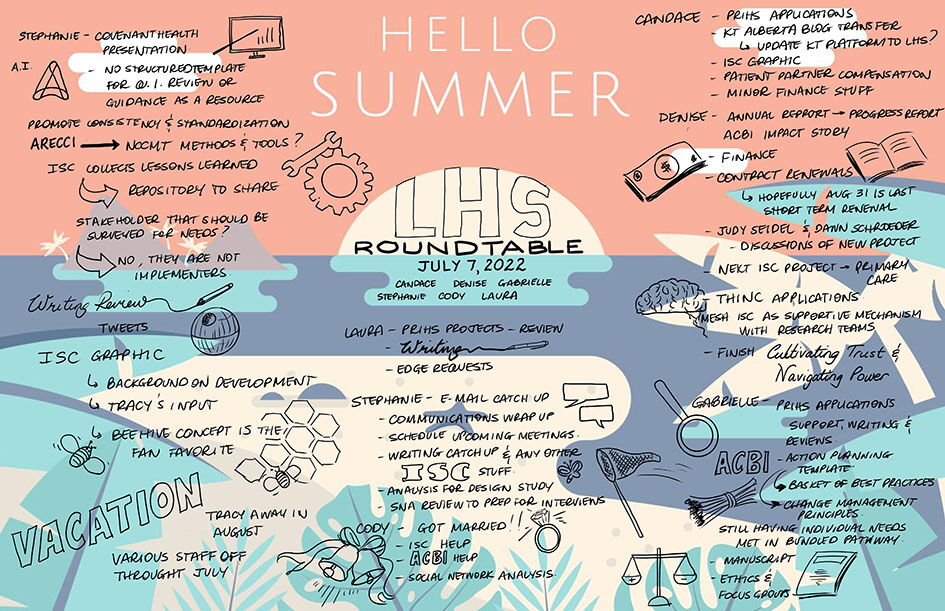 HELLO
SUMMER
STEPHANIE - COVENANT HEALTH
PRESENTATION
A.I.
- NO STRUCTURED TEMPLATE
FOR Q.I. REVIEW OR
GUIDANCE AS A RESOURCE
PROMOTE CONSISTENCY & STANDARDIZATION
ARECCI → NCCMT METHODS & TOOLS?
ISC COLLECTS LESSONS LEARNED
REPOSITORY TO SHARE
STAKEHOLDER THAT SHOULD BE
SURVEYED FOR NEEDS?
NO, THEY ARE NOT
IMPLEMENTERS
Writing Review
TWEETS
ISC GRAPHIC
↳ BACKGROUND ON DEVELOPMENT
↳ TRACY'S INPUT
↳ BEEHIVE CONCEPT IS THE
FAN FAVORITE
VACATION
TRACY AWAY IN
AUGUST
VARIOUS STAFF OFF
THROUGHT JULY
LHS
ROUNDTABLE
JULY 7, 2022
CANDACE DENISE GABRIELLE
STEPHANIE CODY LAURA
LAURA - PRIHS PROJECTS - REVIEW
- Writing
- EDGE REQUESTS
STEPHANIE - E-MAIL CATCH UP
- COMMUNICATIONS WRAP UP
- SCHEDULE UPCOMING MEETINGS.
- WRITING CATCH UP & ANY OTHER
ISC STUFF.
- ANALYSIS FOR DESIGN STUDY
- SNA REVIEW TO PREP FOR INTERVIEWS
CODY - GOT MARRIED!!
- ISC HELP
- ACBI HELP
- SOCIAL NETWORK ANALYSIS.
CANDACE - PRIHS APPLICATIONS
- KT ALBERTA BLOG TRANSFER
↳ UPDATE KT PLATFORM TO LHS?
- ISC GRAPHIC
- PATIENT PARTNER COMPENSATION
- MINOR FINANCE STUFF
DENISE - ANNUAL REPPORT → PROGRESS REPORT
ACBI IMPACT STORY
- FINANCE
- CONTRACT RENEWALS
↳ HOPEFULLY AUG 31 IS LAST
SHORT TERM RENEWAL
- JUDY SEIDEL & DAWN SCHROEDER
- DISCUSSIONS OF NEW PROJECT
- NEXT ISC PROJECT → PRIMARY
CARE
- THINC APPLICATIONS
MESH ISC AS SUPPORTIVE MECHANISM
WITH RESEARCH TEAMS
- FINISH Cultivating Trust &
Navigating Power
GABRIELLE - PRIHS APPLICATIONS
SUPPORT, WRITING &
REVIEWS.
ACBI - ACTION PLANNING
TEMPLATE
→ BASKET OF BEST PRACTICES
→ CHANGE MANAGEMENT
PRINCIPLES
STILL HAVING INDIVIDUAL NEEDS
MET IN BUNDLED PATHWAY.
- MANUSCRIPT
- ETHICS &
FOCUS GROUPS